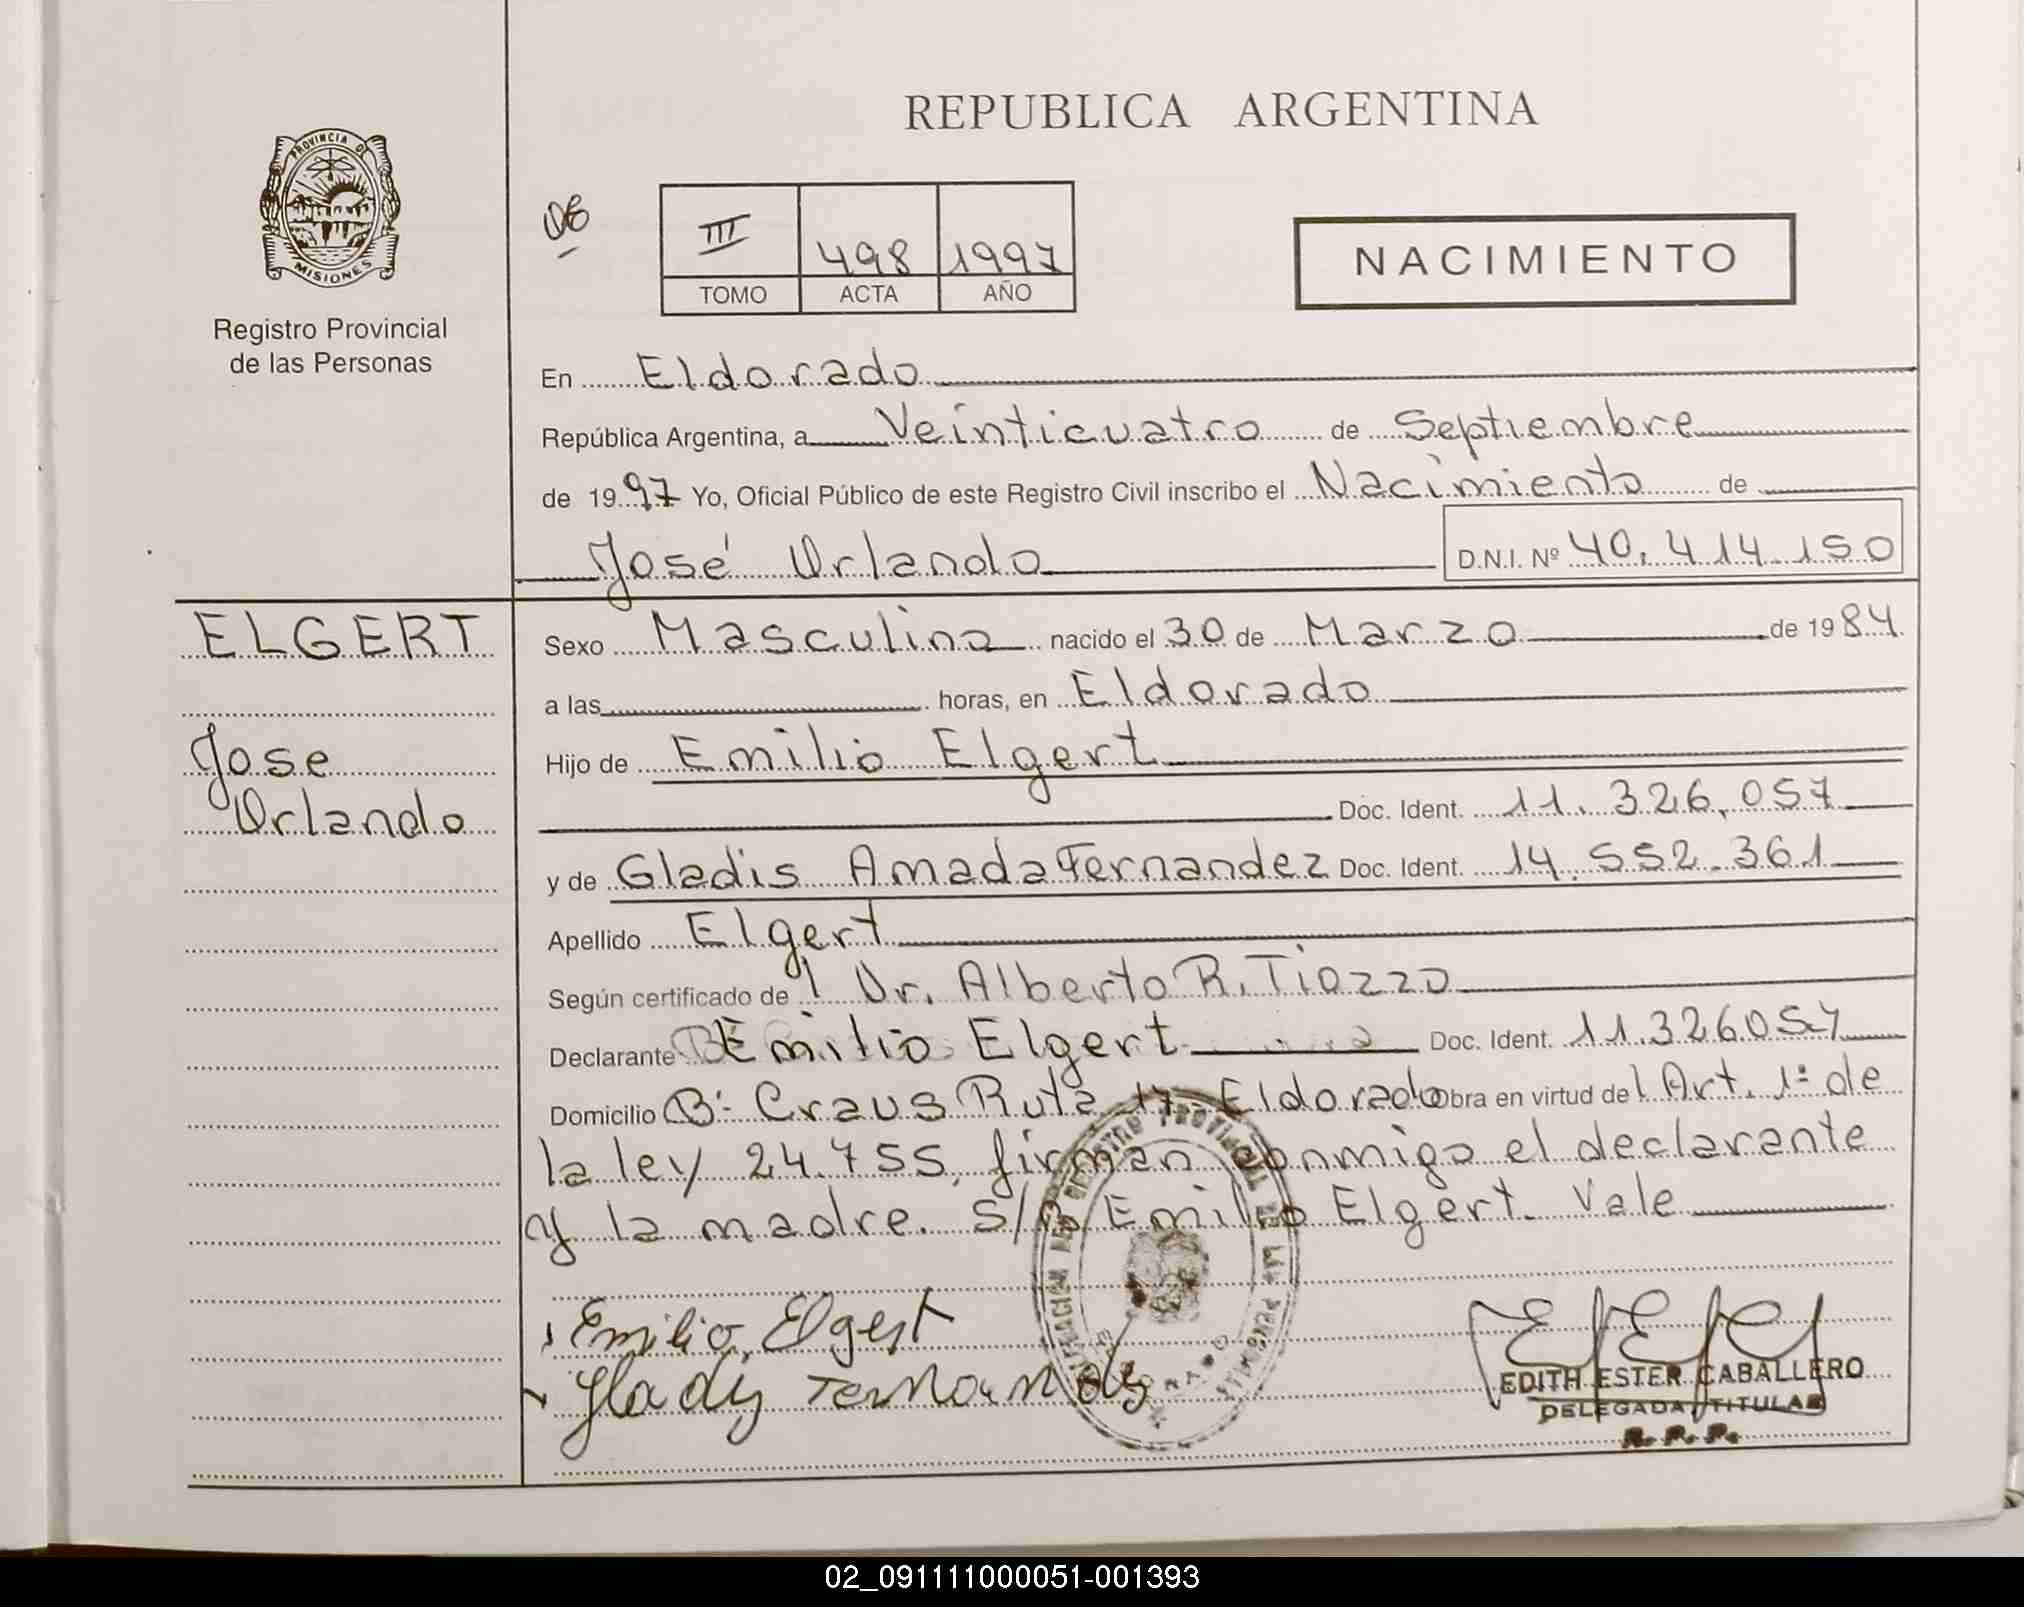 REPUBLICA ARGENTINA
PROVINCIA DE
MISIONES
Registro Provincial
de las Personas
06
III 498 1997
TOMO ACTA AÑO
NACIMIENTO
En Eldorado
República Argentina, a Veinticuatro de Septiembre
de 1997 Yo, Oficial Público de este Registro Civil inscribo el Nacimiento de
José Orlando D.N.I. Nº 40.414.150
ELGERT
Jose
Orlando
Sexo Masculino nacido el 30 de Marzo de 1984
a las horas, en Eldorado
Hijo de Emilio Elgert
Doc. Ident. 11.326.057
y de Gladis Amada Fernandez Doc. Ident. 14.552.361
Apellido Elgert
Según certificado del Dr. Alberto R. Tiozzo
Declarante Emilio Elgert Doc. Ident. 11.326057
Domicilio Bº Craus Ruta 17 Eldorado Obra en virtud del Art. 1º de
la ley 24.755, firman conmigo el declarante
y la madre. S/R Emilio Elgert. Vale
Emilio Elgert
Glady Fernandez
EDITH ESTER CABALLERO
DELEGADA TITULAR
R. P. P.
02_091111000051-001393